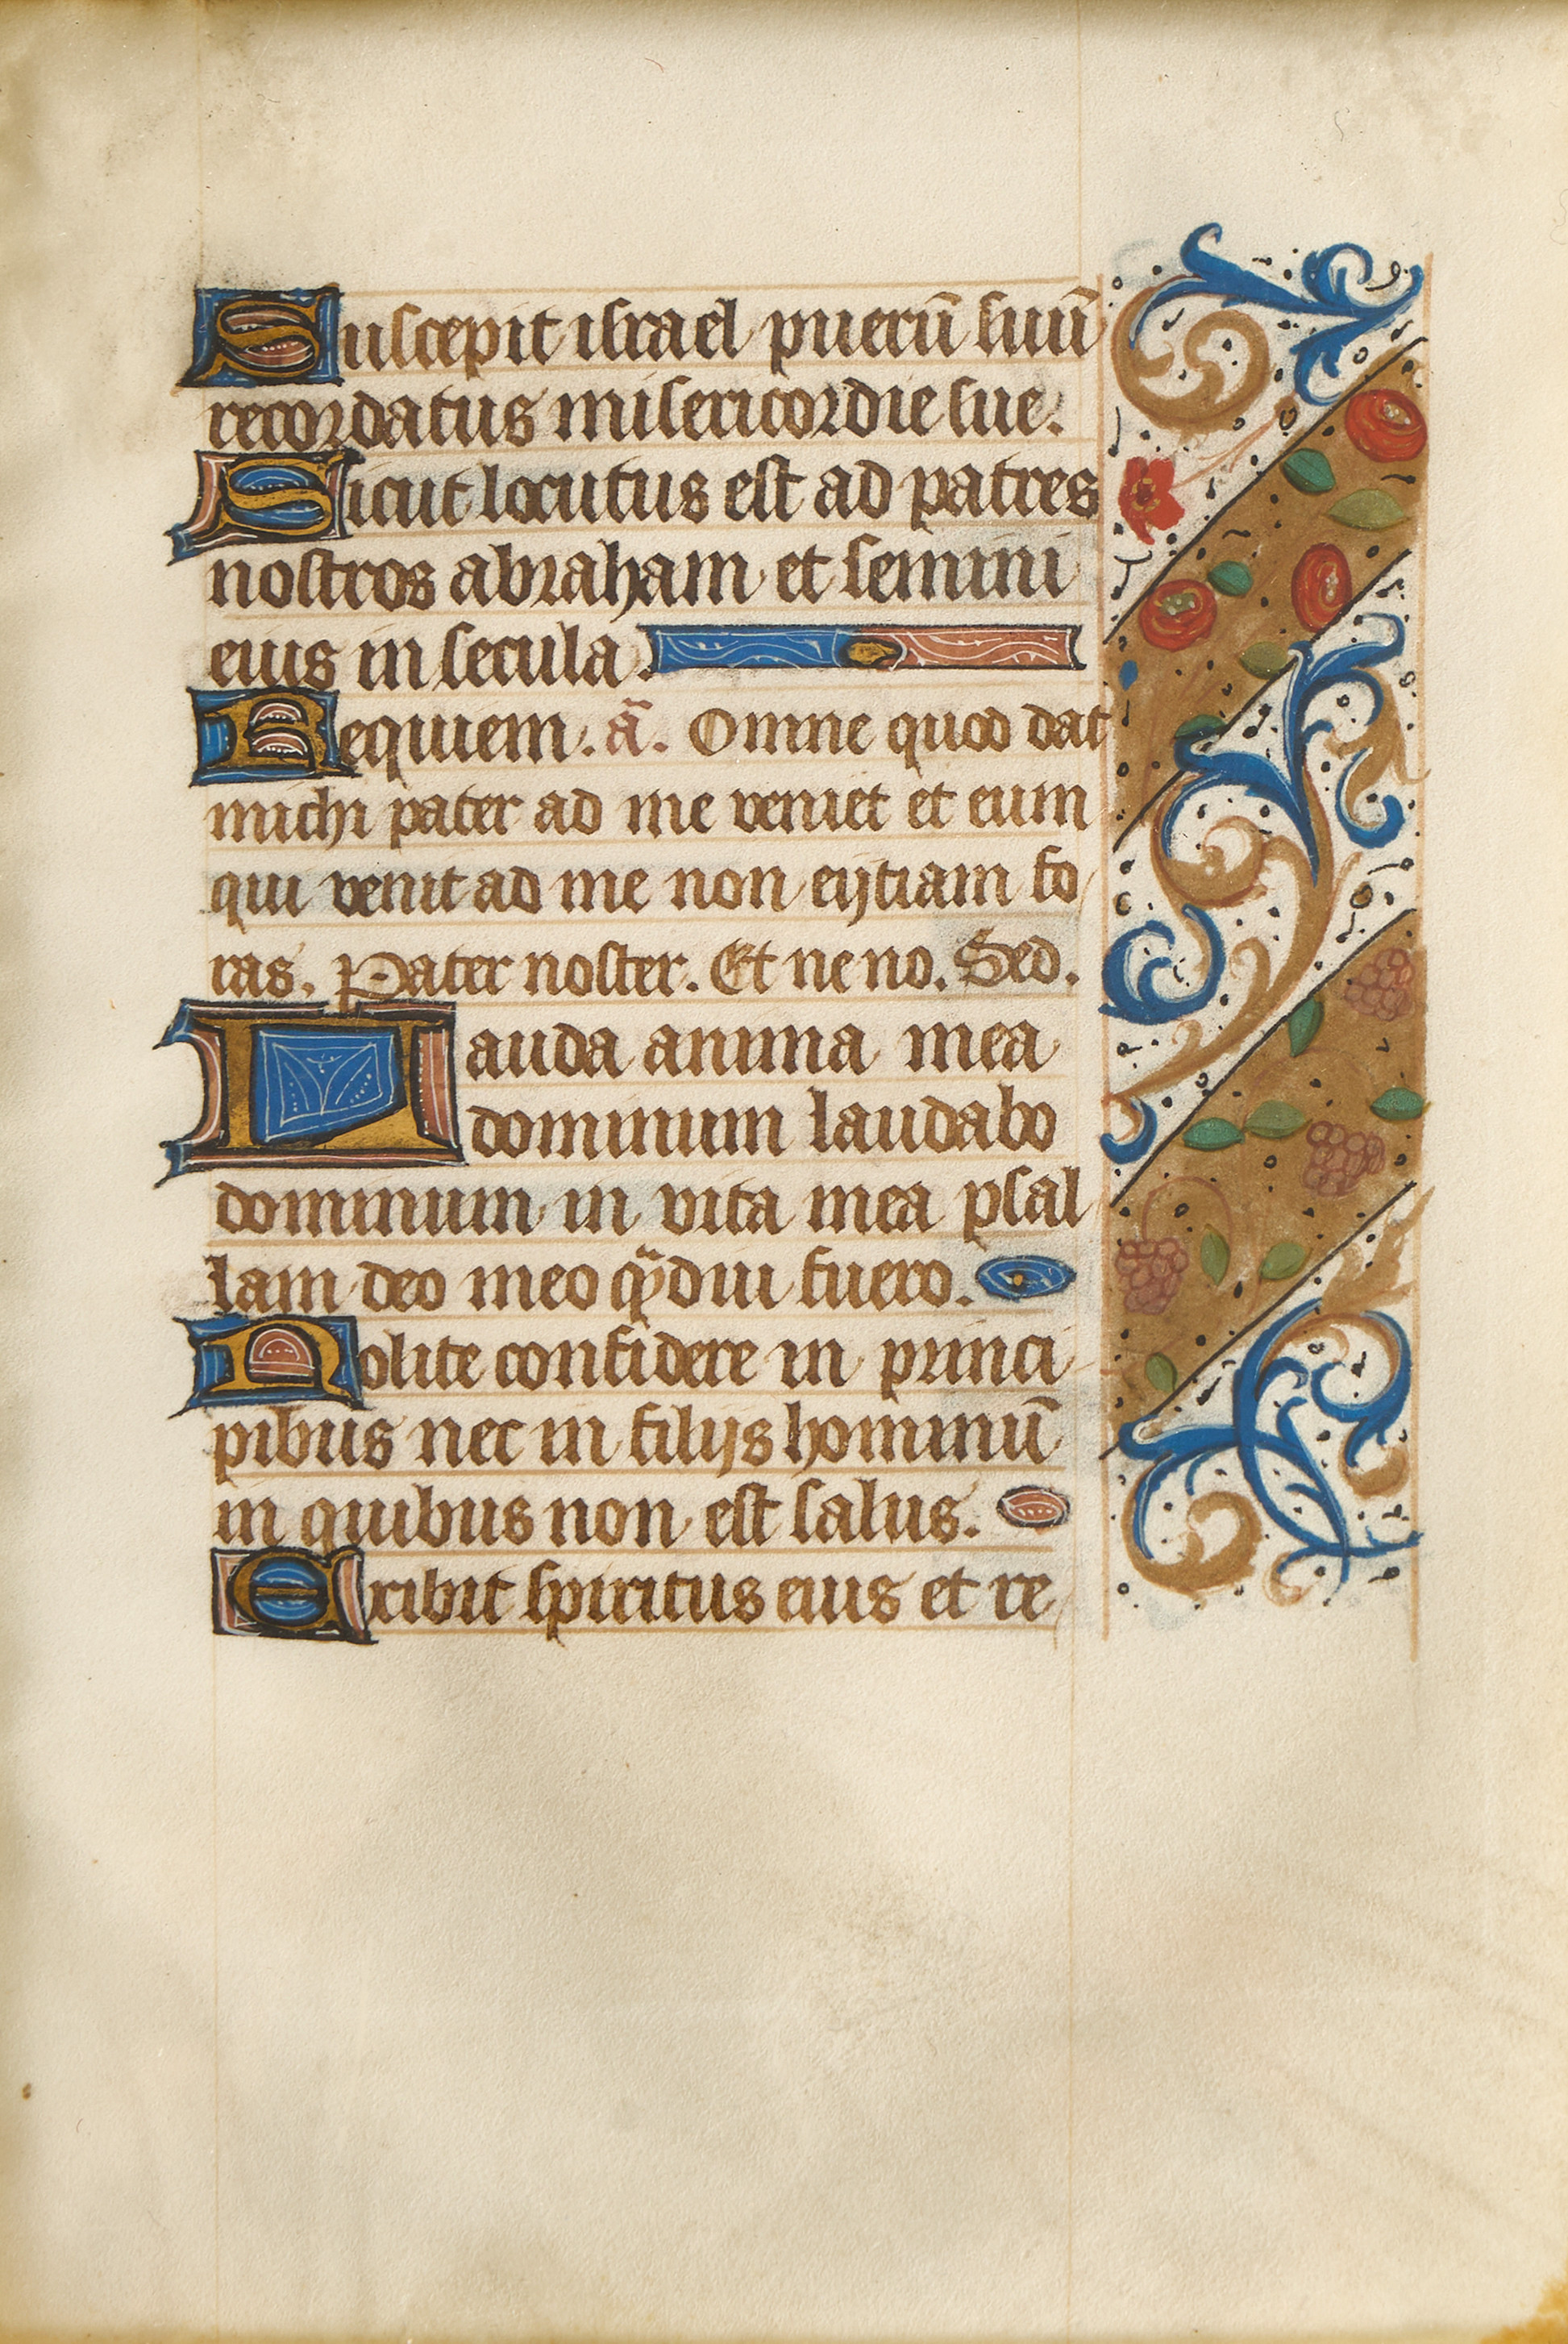 Suscepit israel puerū suū
recordatus misericordie sue.
Sicut locutus est ad patres
nostros abraham et semini
eius in secula.
Requiem. ā. Omne quod dat
michi pater ad me veniet et eum
qui venit ad me non eijciam fo
ras. Pater noster. Et ne no. Sed.
Lauda anima mea
dominum laudabo
dominum in vita mea psal
lam deo meo qͣdiu fuero.
Nolite confidere in princi
pibus nec in filijs hominū
in quibus non est salus.
Exibit spiritus eius et re